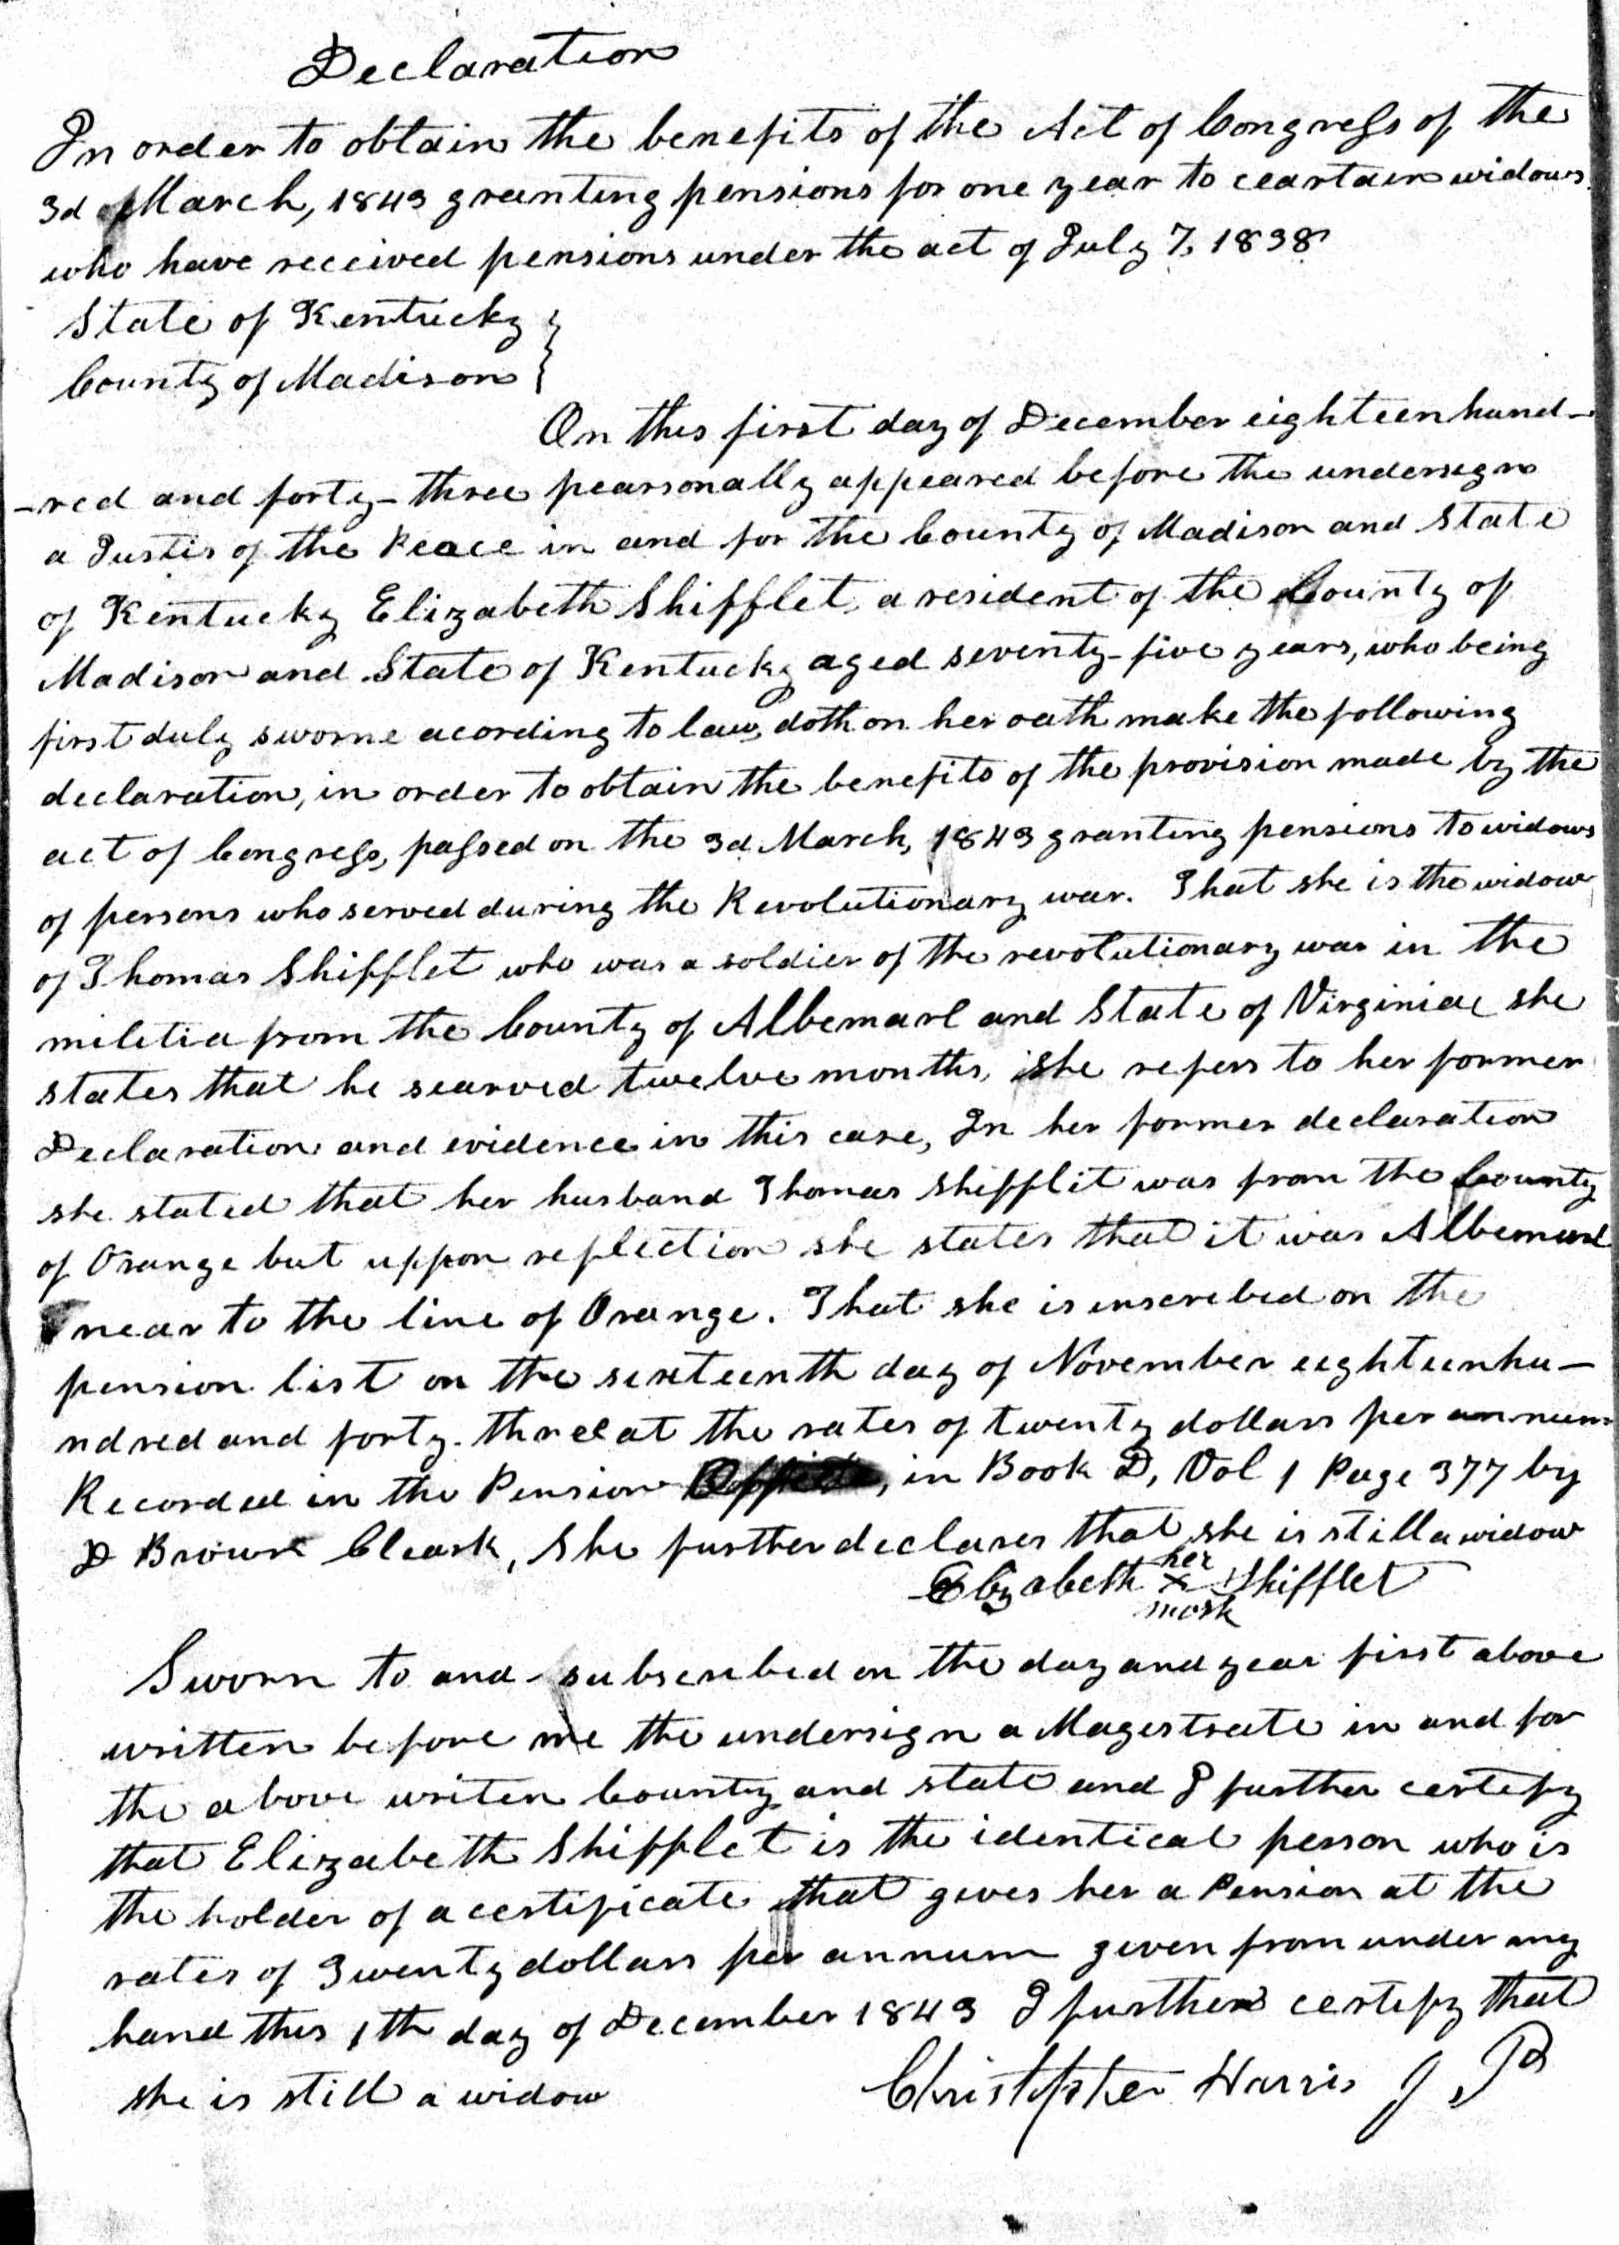 Declaration
In order to obtain the benefits of the Act of Congress of the
3d of March, 1843 granting pensions for one year to ceartain widows
who have received pensions under the act of July 7, 1838
State of Kentucky }
County of Madison }
On this first day of December eighteen hund-
-red and forty-three pearsonally appeared before the undersign
a Justis of the Peace in and for the County of Madison and State
of Kentucky Elizabeth Shifflet, a resident of the County of
Madison and State of Kentucky aged seventy-five years, who being
first duly sworne acording to law, doth on her oath make the following
declaration, in order to obtain the benefits of the provision made by the
act of Congress, passed on the 3d March, 1843 granting pensions to widows
of persons who served during the Revolutionary war. That she is the widow
of Thomas Shifflet who was a soldier of the revolutionary war in the
militia from the County of Albemarl and State of Virginia she
states that he searved twelve months, she refers to her former
Declaration and evidence in this case, In her former declaration
she stated that her husband Thomas Shifflit was from the County
of Orange but uppon reflection she states that it was Albemarl
near to the line of Orange. That she is inscribed on the
pension list on the sixteenth day of November eighteenhu-
ndred and forty-three at the rates of twenty dollars per annum
Recorded in the Pension Office, in Book D, Vol 1 Page 377 by
D Brown Cleark, She further declares that she is still a widow
Elizabeth her x mark Shifflet
Sworn to and subscribed on the day and year first above
written before me the undersign a Magestrate in and for
the above writen County and state and I further certify
that Elizabeth Shifflet is the identical person who is
the holder of a certificate that gives her a Pension at the
rates of Twenty dollars per annum given from under my
hand this 1th day of December 1843 I further certify that
she is still a widow
Christopher Harris J P